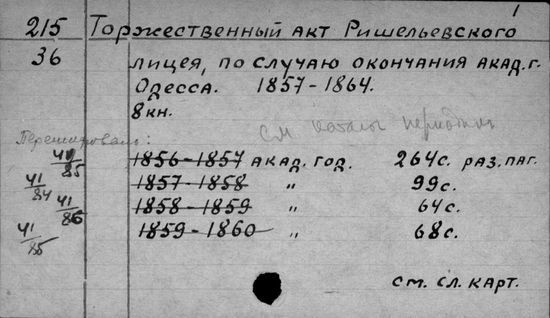 1
215 Торжественный акт Ришельевского
36 лицея, по случаю окончания акад. г.
Одесса. 1857-1864.
8 кн.
см каталог периодики
Перешифровать:
41/85 1856-1857 акад. год. 264с. раз. паг.
41/84 1857-1858 " 99с.
41/86 1858-1859 " 64с.
41/85 1859-1860 " 68с.
см. сл. карт.